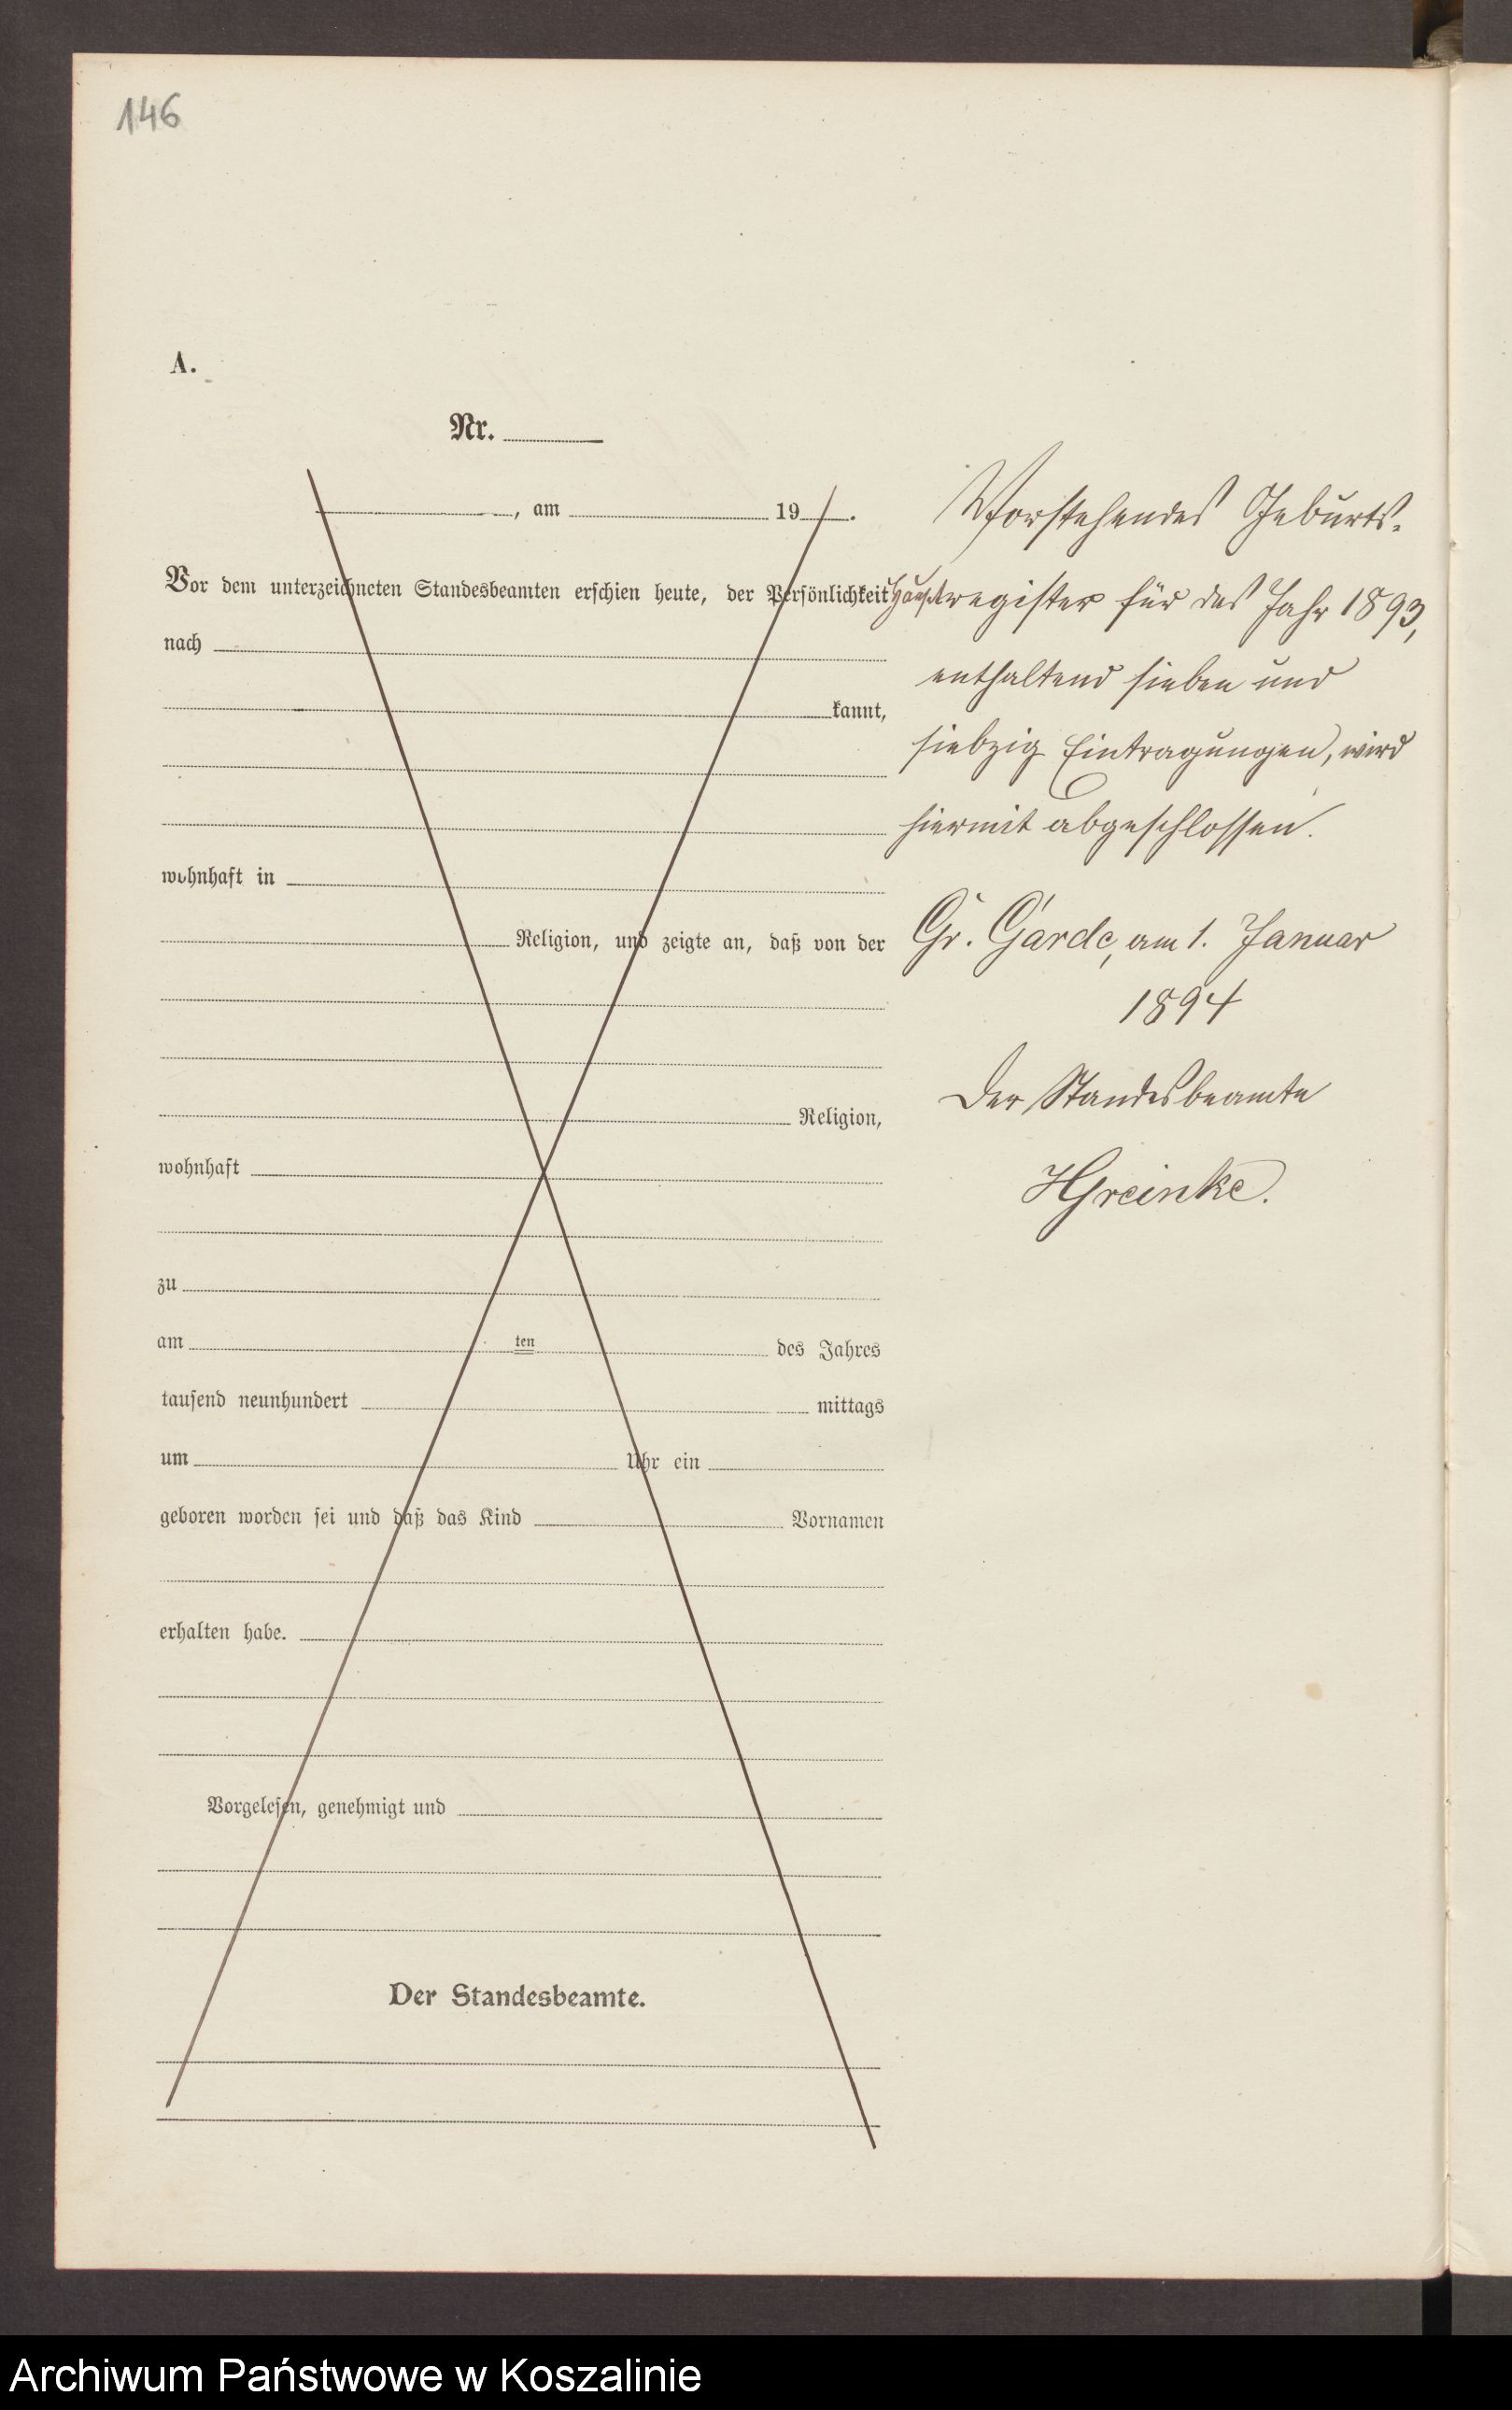 146
A.
Nr.
, am 19 .
Vor dem unterzeichneten Standesbeamten erschien heute, der Persönlichkeit
nach
kannt,
wohnhaft in
Religion, und zeigte an, daß von der
Religion,
wohnhaft
zu
am ten des Jahres
tausend neunhundert mittags
um Uhr ein
geboren worden sei und daß das Kind Vornamen
erhalten habe.
Vorgelesen, genehmigt und
Der Standesbeamte.
Vorstehendes Geburts-
Hauptregister für das Jahr 1893,
enthaltend sieben und
siebzig Eintragungen, wird
hiermit abgeschlossen.
Gr. Garde, am 1. Januar
1894
Der Standesbeamte
HGreinke.
Archiwum Państwowe w Koszalinie